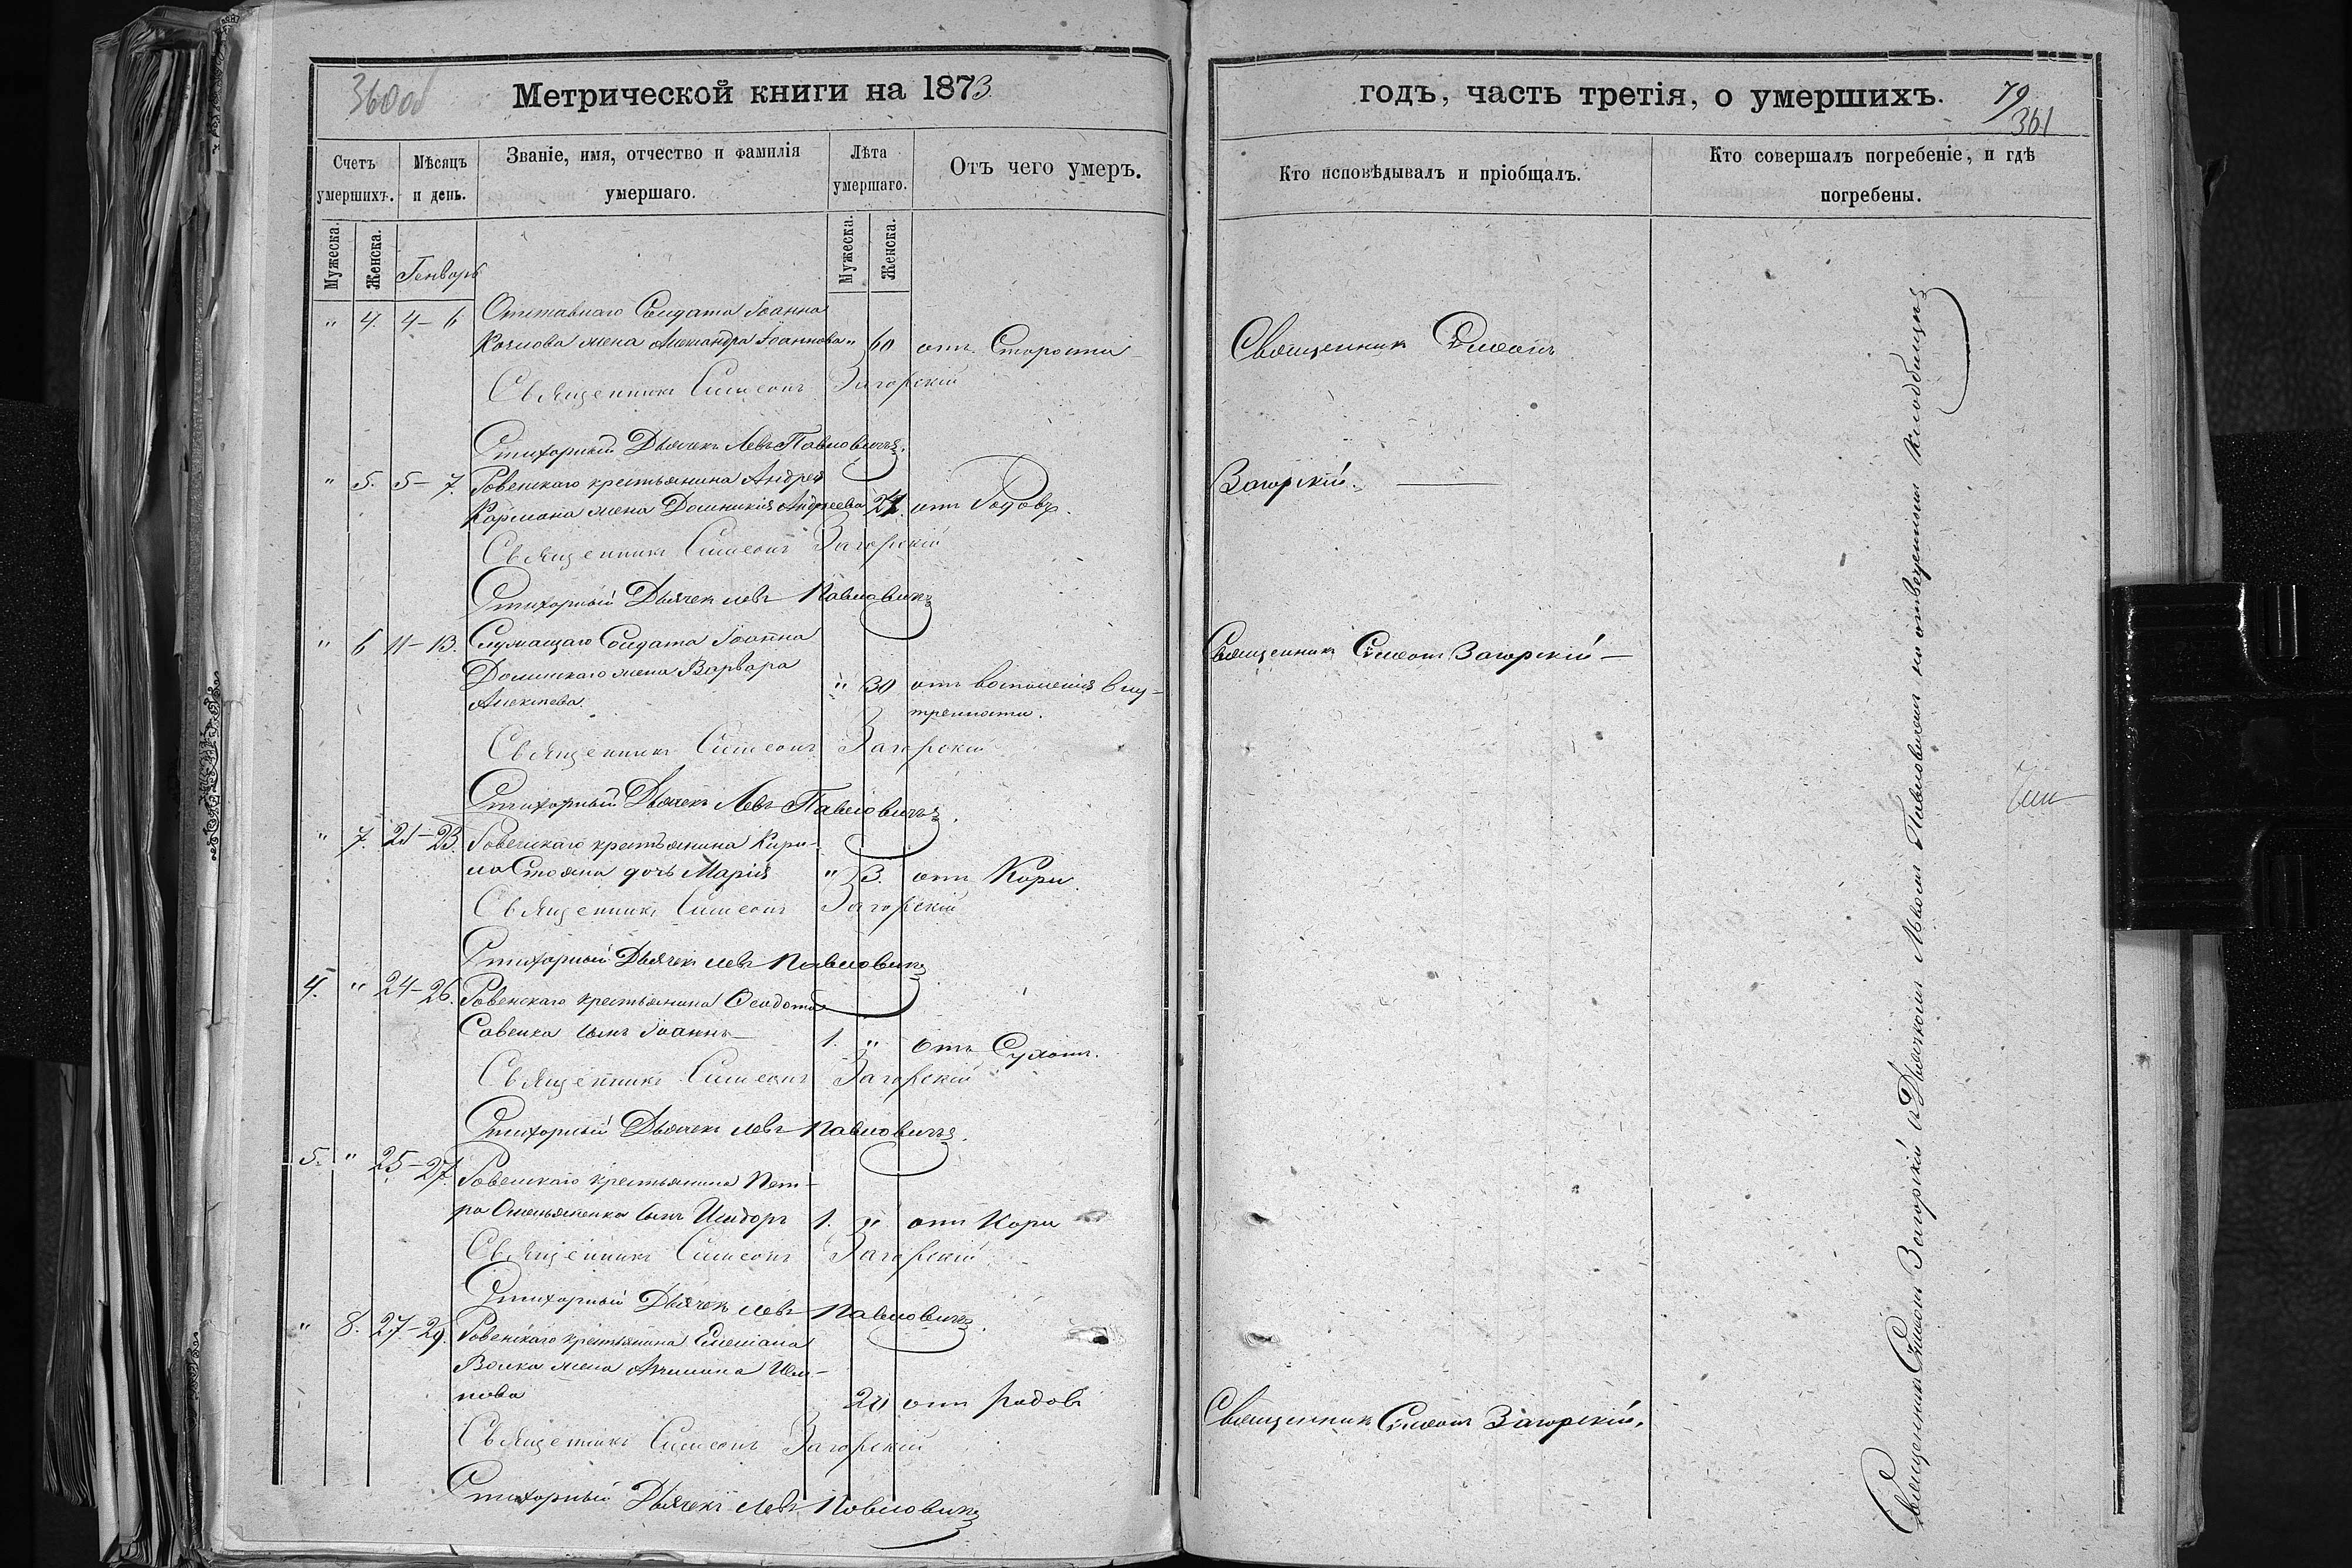 360об
Метрической книги на 1873
Счетъ умершихъ.
Мѣсяцъ и день.
Званіе, имя, отчество и фамилія умершаго.
Лѣта умершаго.
Отъ чего умеръ.
Мужеска.
Женска.
Генварь
Мужеска.
Женска.
" 4. 4-6 Отставнаго Солдата Іоанна
жена Александра Іоаннова " 60 отъ Старости
Священникъ Симеонъ Загорскій
Стихорный Дьячекъ Левъ Павловичъ.
" 5. 5-7. Ровенскаго крестьянина Андрея
жена Домникія Андреева отъ Родовъ.
Священникъ Симеонъ Загорскій
Стихорный Дьячек Левъ Павловичъ
" 6 11-13. Служащаго Солдата Іоанна
Долинскаго жена Варвара " 30 отъ воспаленія внут-
Алексѣева. тренности.
Священникъ Симеонъ Загорскій
Стихорный Дьячекъ Левъ Павловичъ.
" 7. 21-23. Ровенскаго крестьянина Кири-
ла Стояна дочь Марія " 3. отъ Кори.
Священникъ Симеонъ Загорскій
Стихорный Дьячекъ Левъ Павловичъ
4. " 24-26. Ровенскаго крестьянина Ѳеодота
Савенка сынъ Іоаннъ 1. " отъ Сухотъ.
Священникъ Симеонъ Загорскій
Стихорный Дьячекъ Левъ Павловичъ.
5. " 25-27. Ровенскаго крестьянина Пет-
ра Омельяненка сынъ Исидоръ 1. " отъ Кори
Священникъ Симеонъ Загорскій
Стихорный Дьячекъ Левъ Павловичъ.
" 8. 27-29. Ровенскаго крестьянина Емеліана
Волка жена
отъ родовъ
Священникъ Симеонъ Загорскій
Стихорный Дьячекъ Левъ Павловичъ
годъ, часть третія, о умершихъ.
79
361
Кто исповѣдывалъ и пріобщалъ.
Кто совершалъ погребеніе, и гдѣ погребены.
Священник Симеонъ
Загорскій.
Священникъ Симеонъ Загорскій
Священникъ Симеонъ Загорскій.
Священник Симеонъ Загорскій съ Дьячкомъ Львомъ Павловичемъ на отведенномъ Кладбищѣ